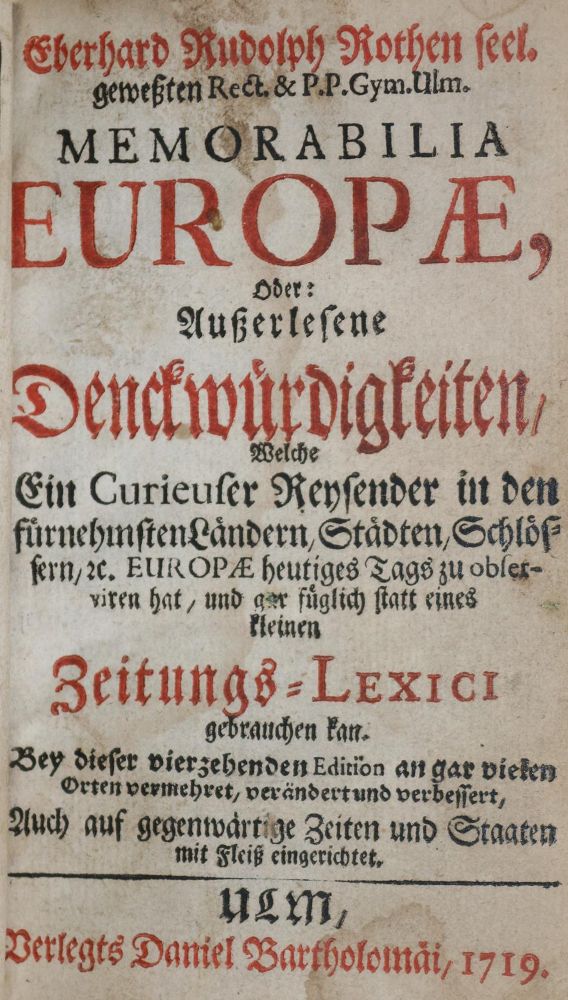 Eberhard Rudolph Rothen seel.
geweßten Rect. & P.P. Gym. Ulm.
MEMORABILIA
EUROPÆ,
Oder:
Außerlesene
Denckwürdigkeiten/
Welche
Ein Curieuser Reysender in den
fürnehmsten Ländern/ Städten/ Schlös-
sern/ ꝛc. EUROPÆ heutiges Tags zu obser-
viren hat/ und gar füglich statt eines
kleinen
Zeitungs-LEXICI
gebrauchen kan.
Bey dieser vierzehenden Edition an gar vielen
Orten vermehret, verändert und verbessert,
Auch auf gegenwärtige Zeiten und Staaten
mit Fleiß eingerichtet.
ULM,
Verlegts Daniel Bartholomäi, 1719.